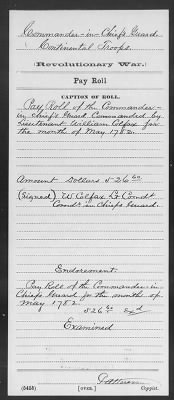 Commander-in-Chief's Guard
Continental Troops.
Revolutionary War.
Pay Roll
CAPTION OF ROLL.
Pay Roll of the Commander-
in Chief's Guard Commanded by
Lieutenant William Colfax for
the month of May 1782.
Amount Dollars 526 60
(Signed) W Colfax Lt Comdt
Comdr in Chiefs Guard.
Endorsement.
Pay Roll of the Commander in
Chiefs Guard for the month of
May 1782.
526
Examined
[OVER.]
Copyist.